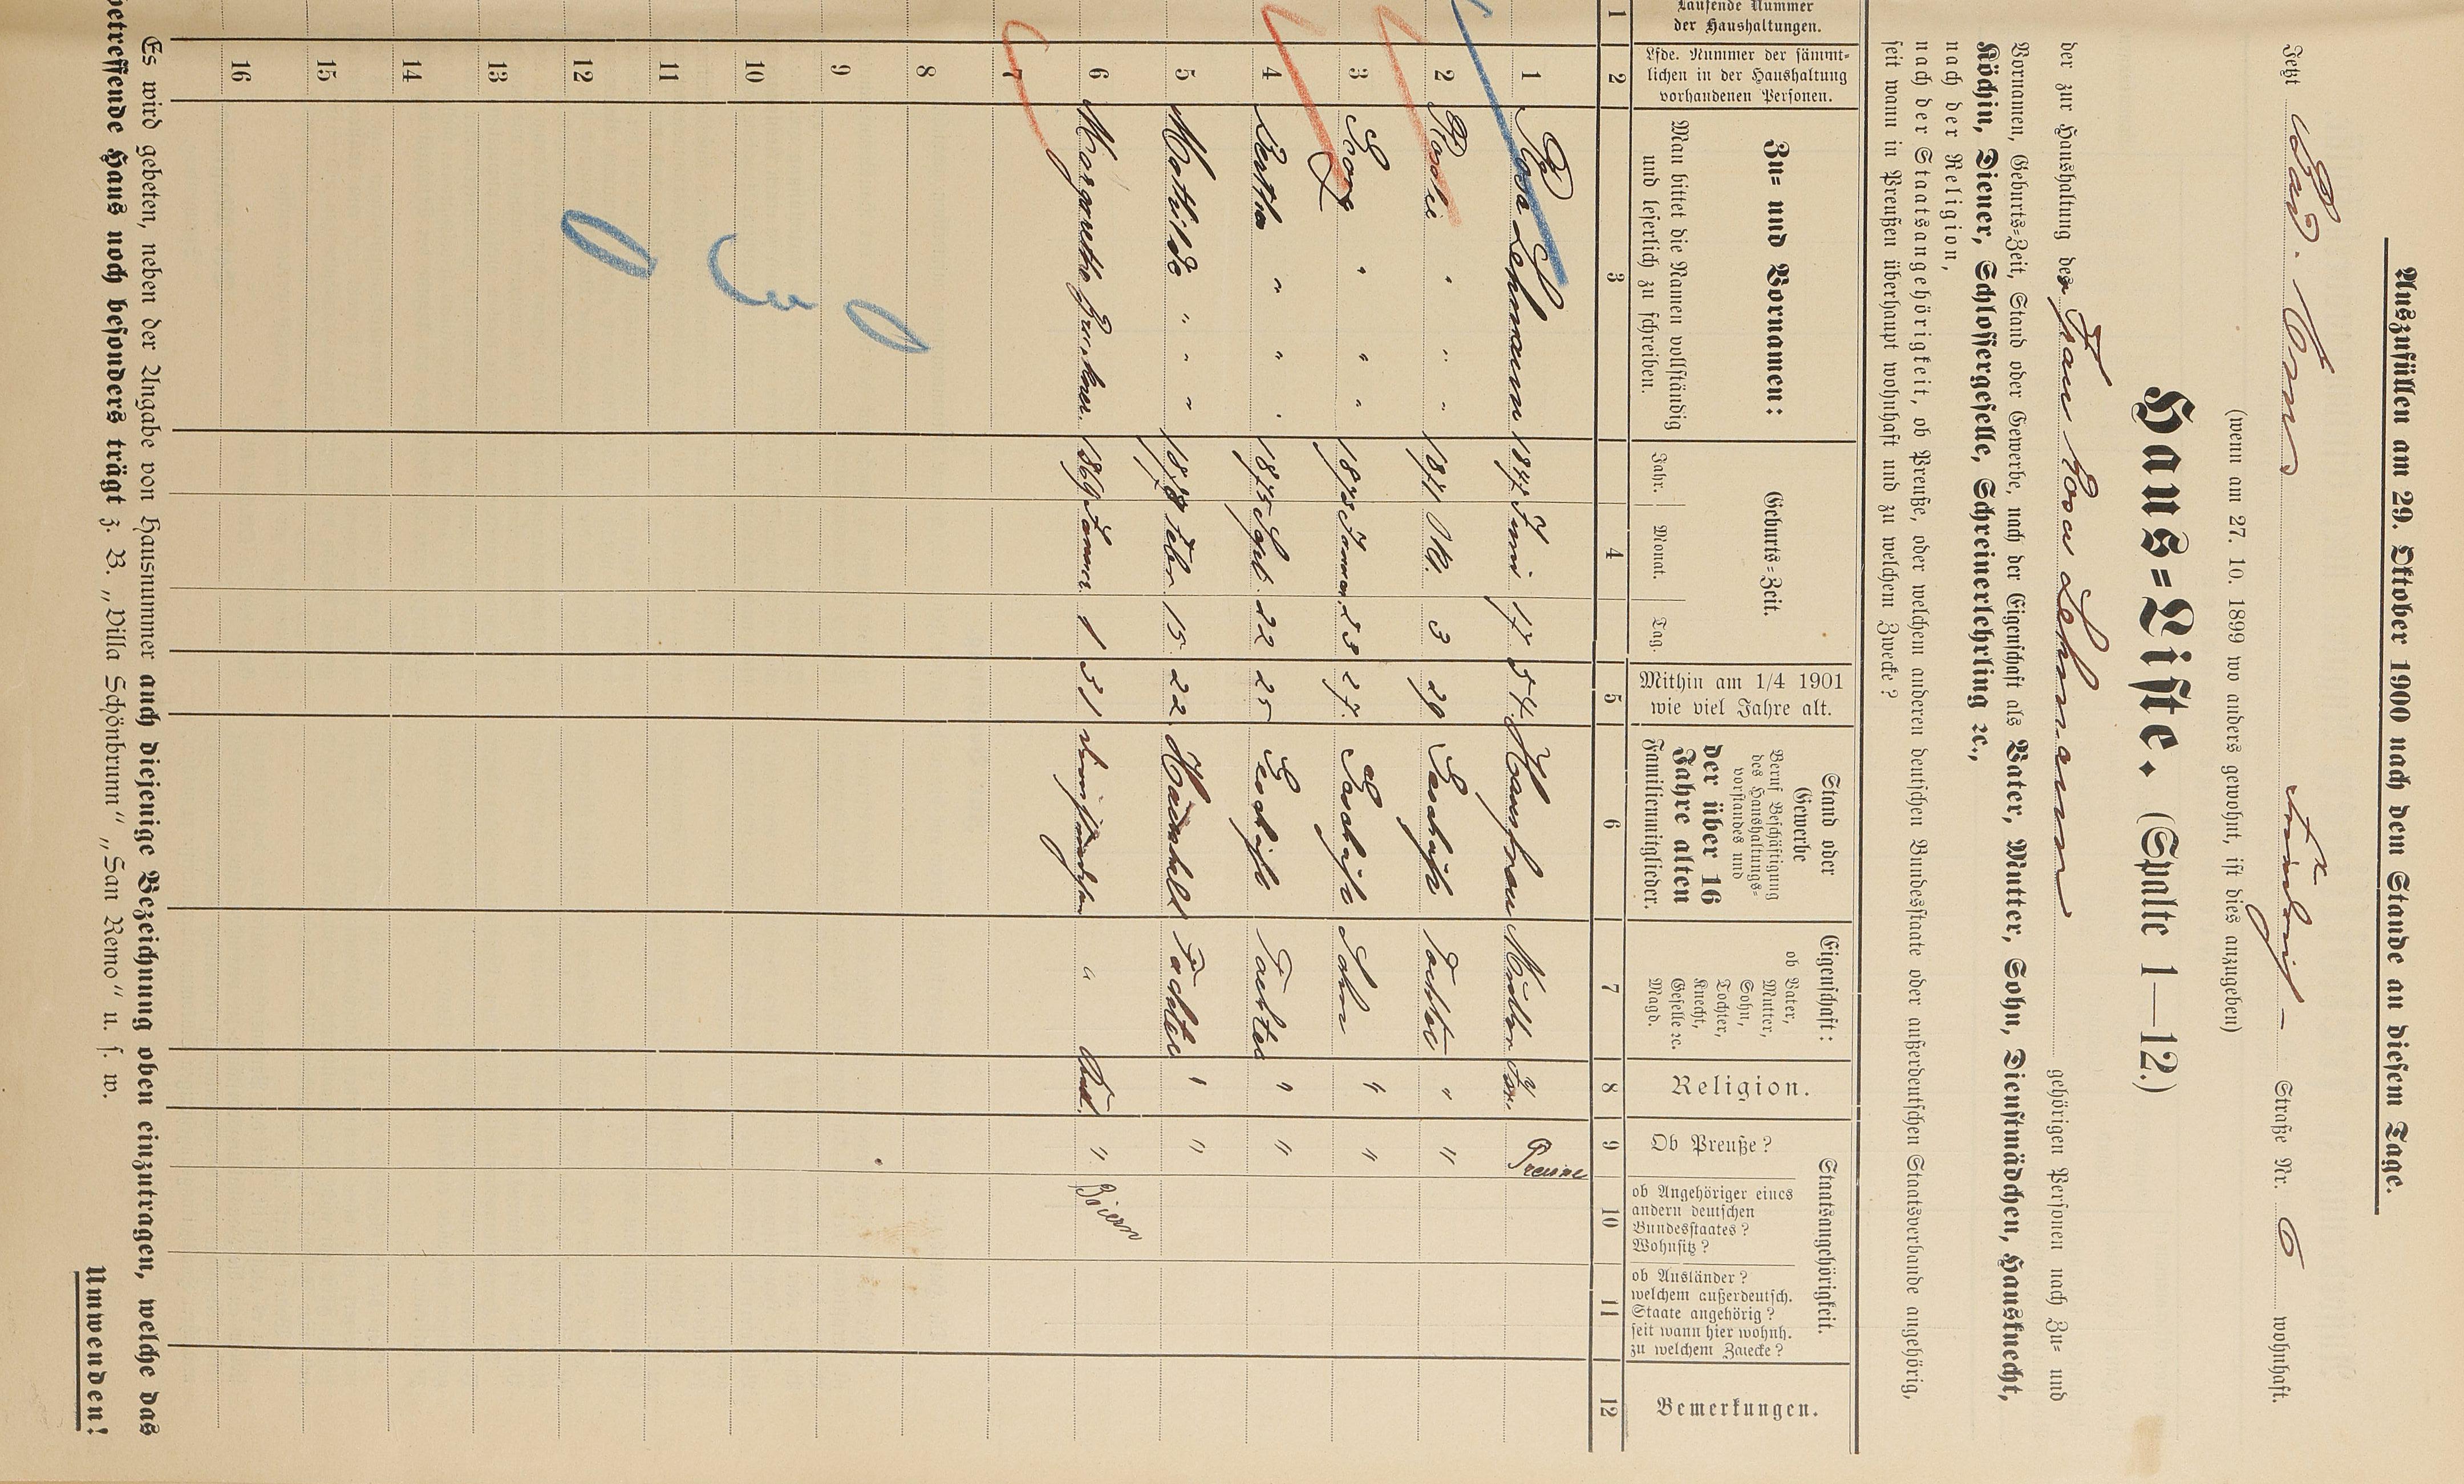 Auszufüllen am 29. Oktober 1900 nach dem Stande an diesem Tage.
Jetzt Bad. Ems Straße Nr. 6 wohnhaft.
(wenn am 27. 10. 1899 wo anders gewohnt, ist dies anzugeben)
Haus=Liste. (Spalte 1—12.)
der zur Haushaltung des Frau Rosa Lehmann gehörigen Personen nach Zu= und
Vornamen, Geburts=Zeit, Stand oder Gewerbe, nach der Eigenschaft als Vater, Mutter, Sohn, Dienstmädchen, Hausknecht,
Köchin, Diener, Schlossergeselle, Schreinerlehrling ꝛc.,
nach der Religion,
nach der Staatsangehörigkeit, ob Preuße, oder welchem anderen deutschen Bundesstaate oder außerdeutschen Staatsverbande angehörig,
seit wann in Preußen überhaupt wohnhaft und zu welchem Zwecke?
Laufende Nummer der Haushaltungen.
Lfde. Nummer der sämmtlichen in der Haushaltung vorhandenen Personen.
Zu= und Vornamen:
Man bittet die Namen vollständig und leserlich zu schreiben.
Geburts=Zeit.
Jahr. Monat. Tag.
Mithin am 1/4 1901 wie viel Jahre alt.
Stand oder Gewerbe
Beruf Beschäftigung des Haushaltungs=vorstandes und
der über 16 Jahre alten
Familienmitglieder.
Eigenschaft:
ob Vater, Mutter, Sohn, Tochter, Knecht, Geselle ꝛc. Magd.
Religion.
Staatsangehörigkeit.
Ob Preuße?
ob Angehöriger eines andern deutschen Bundesstaates? Wohnsitz?
ob Ausländer? welchem außerdeutsch. Staate angehörig? seit wann hier wohnh. zu welchem Zwecke?
Bemerkungen.
1 2 3 4 5 6 7 8 9 10 11 12
1 Rosa Lehmann 1847 Juni 17 54 Hausfrau Mutter Isr. Preusse
2 Rosalie " " " 1871 Okt. 3 29 Geschäft Tochter " "
3 Georg " " " 1873 Januar 23 27. Geschäft Sohn " "
4 Bertha " " " 1875 Sept. 22 25 Geschäft Tochter " "
5 Mathilde " " " 1878 Febr. 15 22 Haushalt Tochter " "
6 Margarethe 1869 Januar 1 31 Dienstmädchen " "
7
8
9
10
11
12
13
14
15
16
Es wird gebeten, neben der Angabe von Hausnummer auch diejenige Bezeichnung oben einzutragen, welche das
betreffende Haus noch besonders trägt z. B. „Villa Schönbrunn“ „San Remo“ u. s. w.
Umwenden!